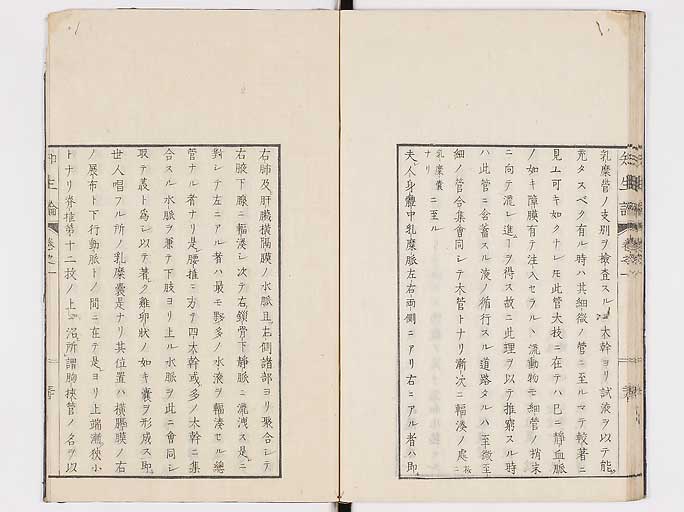 乳糜管ノ支別ヲ検査スルニ本幹ヨリ試液ヲ以テ能
充タスベク有ル時ハ其細微ノ管ニ至ルマテ較著ニ
見ユ可キ如クナレ𪜈此管大技ニ在テハ已ニ静血脈
ノ如キ障膜有テ注入セラルヽ流動物モ細管ノ梢末
ニ向テ流レ進ーヲ得ス故ニ此理ヲ以テ推察スル時
ハ此管ニ含蓄スル液ノ循行スル道路タルハ至微至
細ノ管合集會同シテ大管トナリ漸次ニ輻湊ノ處ニ
乳糜嚢ニ至ル
ナリ
夫人身軆中乳糜脈左右両側ニアリ右ニアル者ハ即
右肺及肝臓横隔膜ノ水脈且左側諸部ヨリ聚合シテ
右腋下腺ニ輻湊シ次テ右鎖骨下静脈ニ流洩ス是ニ
對シテ左ニアル者ハ最モ夥多ノ水液ヲ輻湊セル總
管ナル者ナリ是腰椎ニ方テ四本幹或多ノ本幹ニ集
合スル水脈ヲ兼テ下肢ヨリ上ル水脈ヲ此ニ會同シ
取テ義ト為シ以テ著ク雞卵状ノ如キ嚢ヲ形成ス即
世人唱フル所ノ乳糜嚢是ナリ其位置ハ横膈膜ノ右
ノ展布ト下行動脈トノ間ニ在テ是ヨリ上端漸狭小
トナリ脊椎第十二技ノ上ニ沿所謂胸挟管ノ名ヲ以
知生論 巻之一